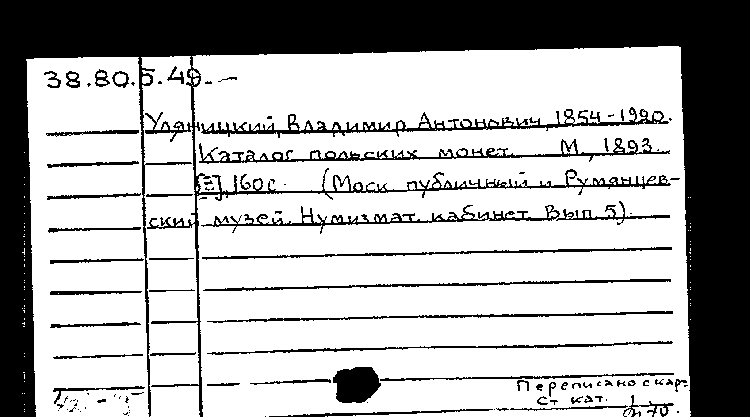 38.80.5.49.-
Уляницкий, Владимир Антонович, 1854-1920.
Каталог польских монет. М., 1893.
[3], 160 с. (Моск. публичный и Румянцев-
ский музей. Нумизмат. кабинет. Вып. 5).
Переписано с кар-
ст. кат.